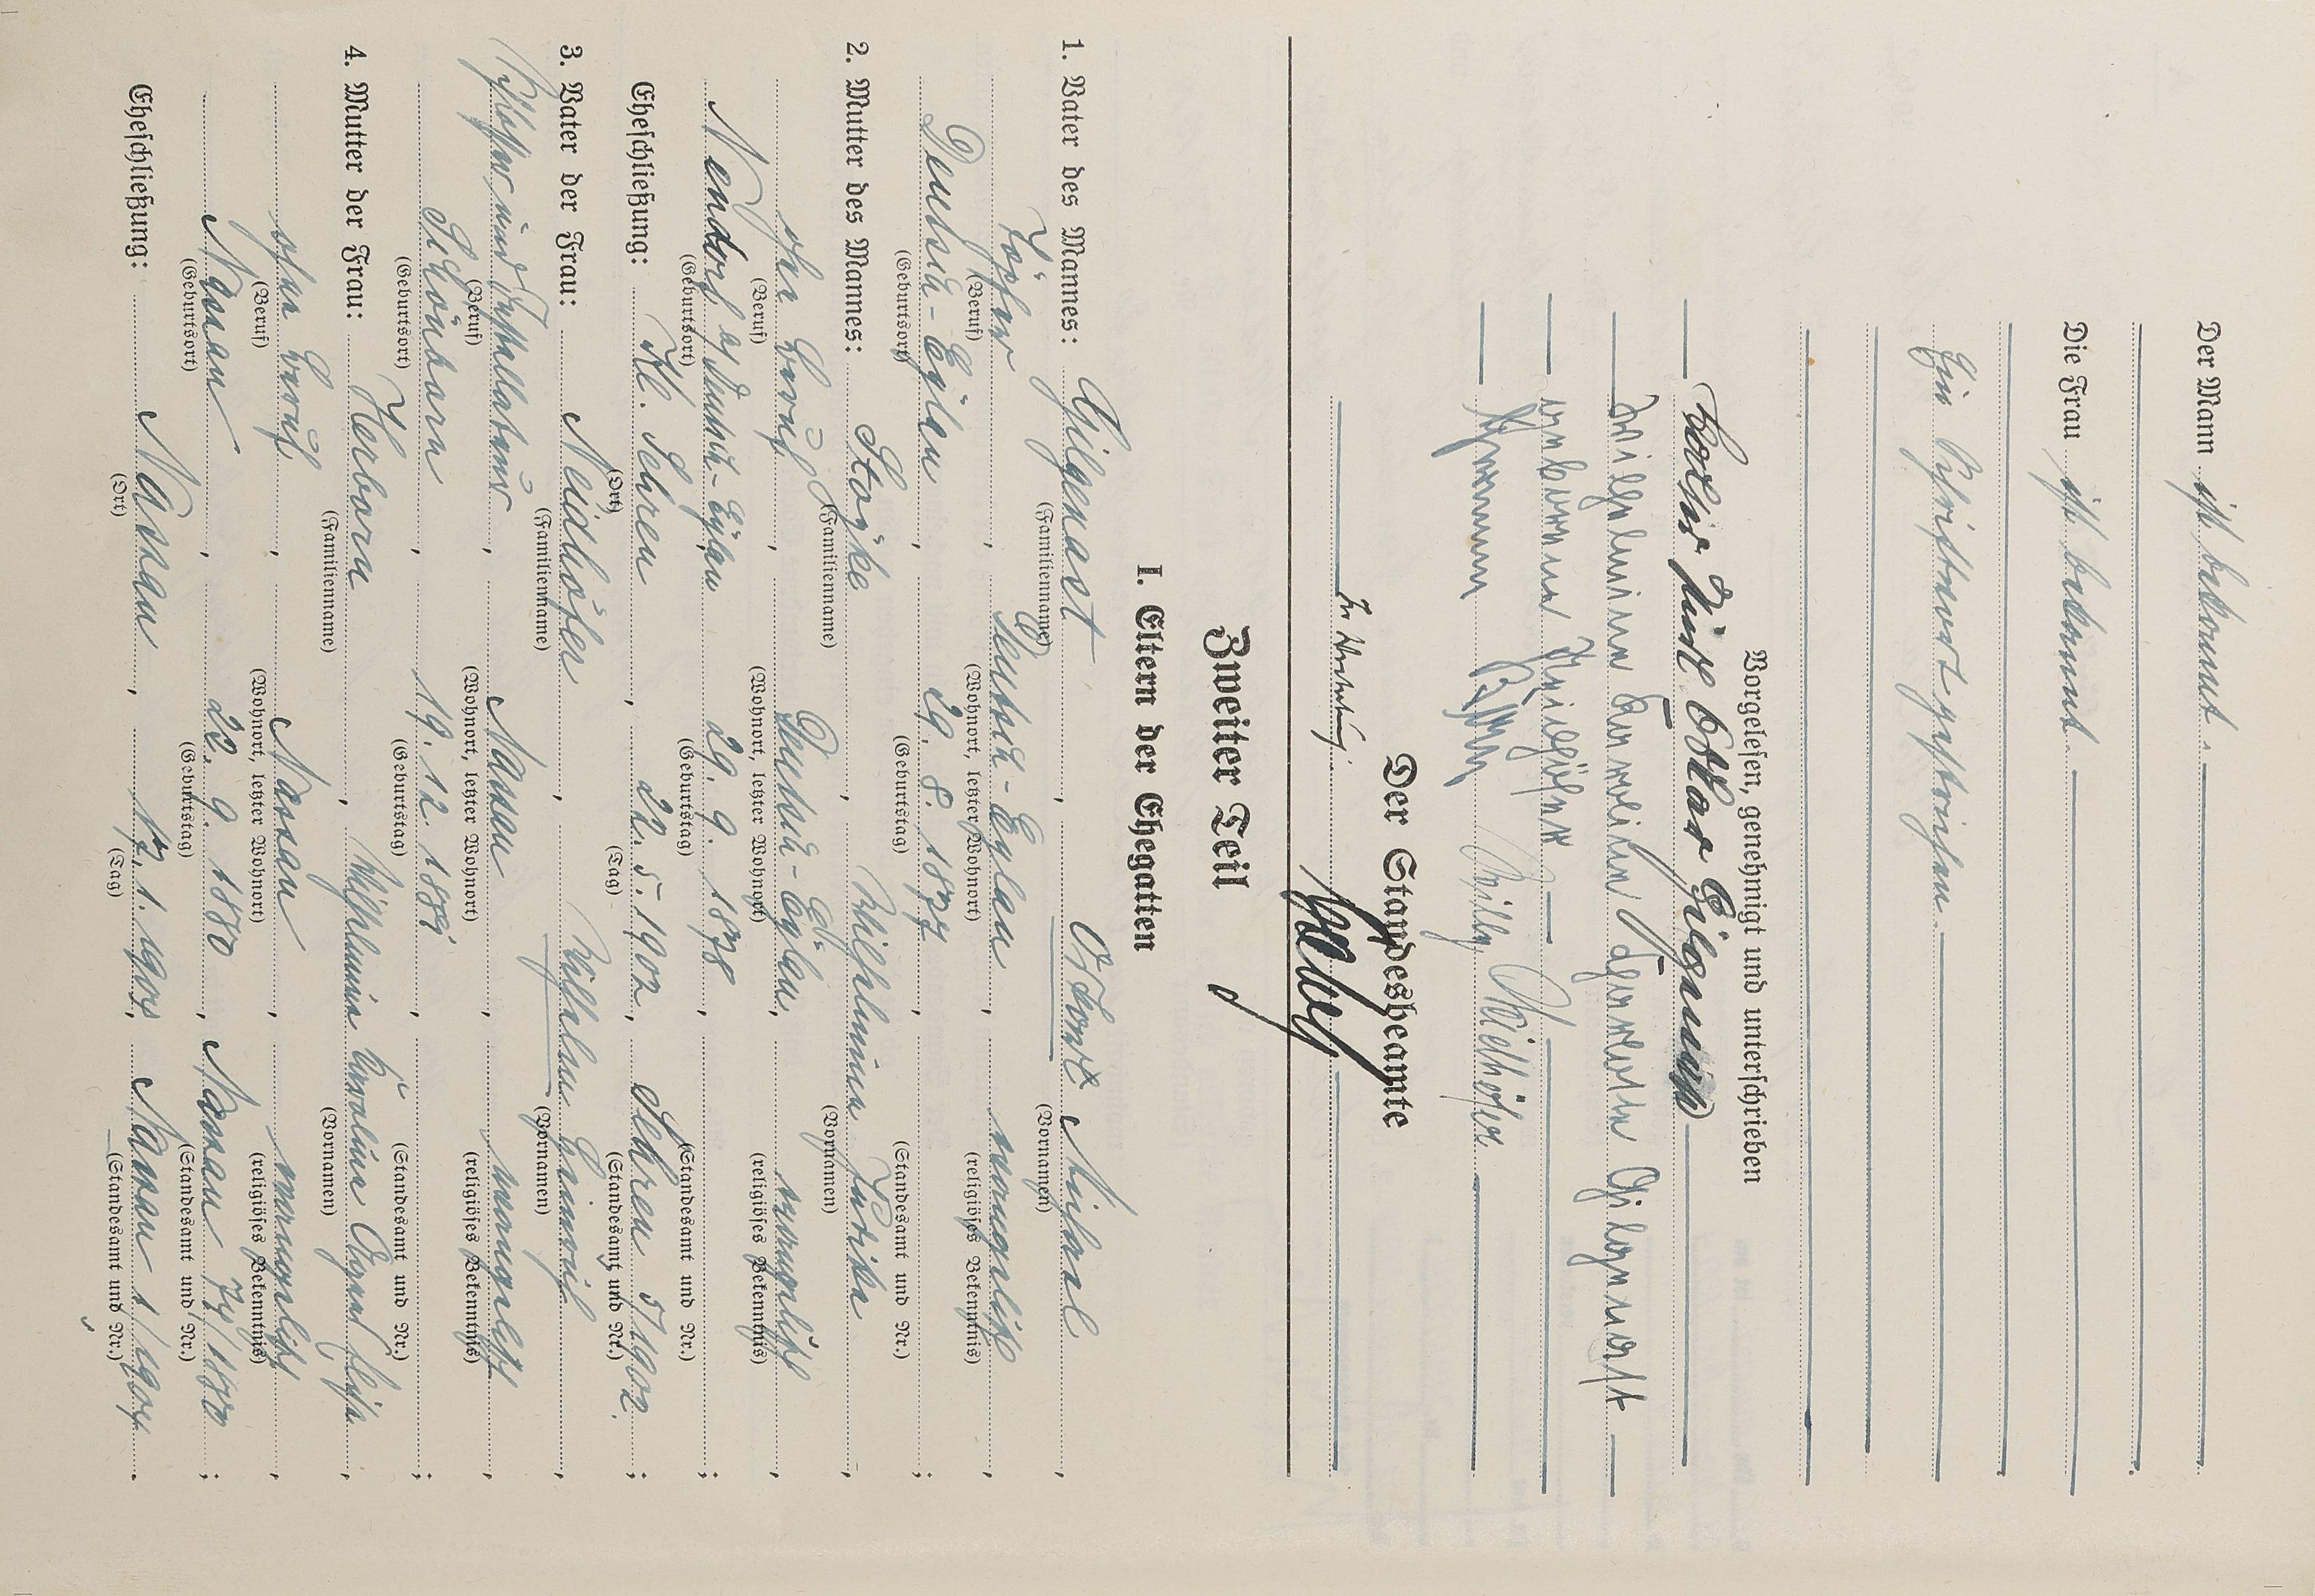 Der Mann ist bekannt.
Die Frau ist bekannt
Ein Wort gestrichen.
Vorgelesen, genehmigt und unterschrieben
Walter Kurt Ottar Gilgenast
Wilhelmine verw. Gilgenast
geborene Neidhöfer
Willy Neidhöfer
Der Standesbeamte
In Vertretung
Zweiter Teil
I. Eltern der Ehegatten
1. Vater des Mannes: Gilgenast, Ottomar Michael,
(Familienname) (Vornamen)
Töpfer, Deutsch-Eylau, evangelisch,
(Beruf) (Wohnort, letzter Wohnort) (religiöses Bekenntnis)
Deutsch-Eylau, 29. 8. 1877,
(Geburtsort) (Geburtstag) (Standesamt und Nr.)
2. Mutter des Mannes: Wilhelmine
(Familienname) (Vornamen)
ohne Beruf, Deutsch-Eylau, evangelisch,
(Beruf) (Wohnort, letzter Wohnort) (religiöses Bekenntnis)
Neudorf b/ Deutsch-Eylau 29. 9. 1878,
(Geburtsort) (Geburtstag) (Standesamt und Nr.)
Eheschließung: Kl. Sehren, 22. 5. 1902, Sehren 5/1902.
(Ort) (Tag) (Standesamt und Nr.)
3. Vater der Frau: Neidhöfer, Wilhelm Heinrich,
(Familienname) (Vornamen)
Schlosser und Installateur, Nassau, evangelisch,
(Beruf) (Wohnort, letzter Wohnort) (religiöses Bekenntnis)
Schönborn, 19. 12. 188
(Geburtsort) (Geburtstag) (Standesamt und Nr.)
4. Mutter der Frau: Herborn, Wilhelmine Karoline Agnes Elise,
(Familienname) (Vornamen)
ohne Beruf, Nassau, evangelisch,
(Beruf) (Wohnort, letzter Wohnort) (religiöses Bekenntnis)
Nassau, 22. 9. 1880, Nassau 74/1880
(Geburtsort) (Geburtstag) (Standesamt und Nr.)
Eheschließung: Nassau, 17. 1. 1904, Nassau 1/1904.
(Ort) (Tag) (Standesamt und Nr.)